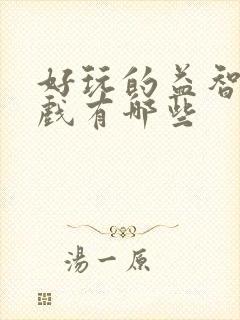 好玩的益智
戲有哪些
湯一原